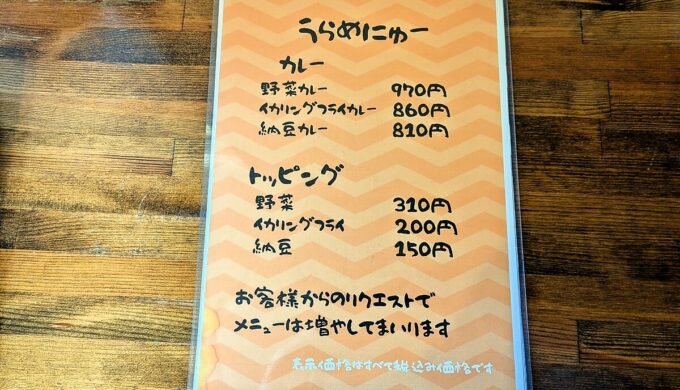 うらめにゅー
カレー
野菜カレー 970円
イカリングフライカレー 860円
納豆カレー 810円
トッピング
野菜 310円
イカリングフライ 200円
納豆 150円
お客様からのリクエストで
メニューは増やしてまいります
表示価格はすべて税込み価格です